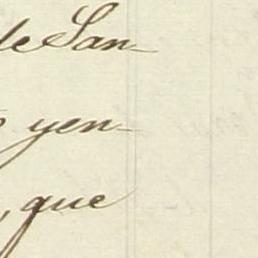 de San-
yen-
, que